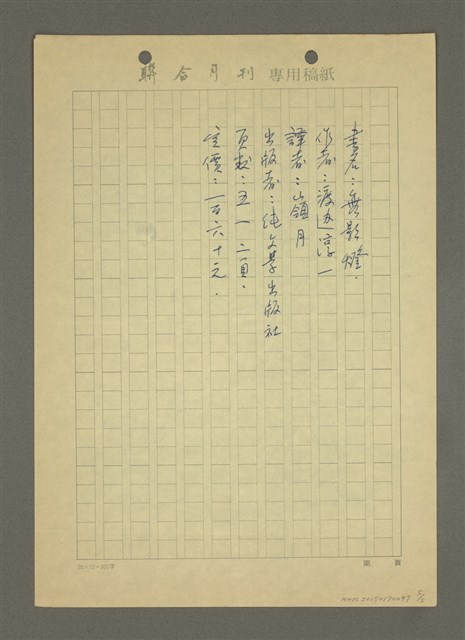 聯合月刊 專用稿紙
書名：無影燈．
作者：渡边淳一
譯者：嶺月
出版者：純文學出版社
頁数：五一二頁．
定價：一百六十元．
25×12=300字
第 頁
NMTL20150270097 2/2